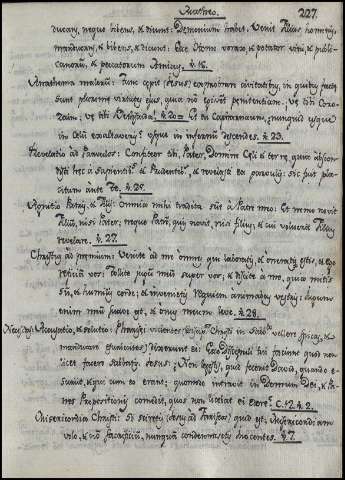 Matheo. 227.
ducans, neque bibens, & dicunt: Demonium habet. Venit Filius hominis,
manducans, & bibens, & dicunt: Ecce Homo vorax, & potator vini, & publi-
canorum, & peccatorum Amicus. §. 18.
Anathema malorum: Tunc cepit (Jesus) exprobrare civitatibus, in quibus facte
sunt plurime virtutes ejus, quia non egissent penitentiam. Ve tibi Coro-
zaim: ve tibi Bethsaida! §. 20. Et tu Capharnaum, numquid usque
in Celum exaltaveris? usque in infernum descendes. §. 23.
Revelatio ad Parvulos: Confiteor tibi, Pater, Domine Celi, & terre, quia abscon-
disti hec a Sapientibus & Prudentibus, & revelasti ea parvulis: sic fuit pla-
citum ante Te. §. 25.
Agnitio Patris, & Filii: Omnia mihi tradita sunt a Patre meo: Et nemo novit
Filium, nisi Pater; neque Patrem, quis novit, nisi Filius, & cui voluerit Filius
revelare. §. 27.
Christus ad premium: Venite ad me omnes qui laboratis, & onerati estis, & ego
reficiam vos: Tollite jugum meum super vos, & discite a me, quia mitis
sum, & humilis corde; & invenietis Requiem animabus vestris: jugum
enim meum suave est, & onus meum leve. §. 28.
Accusatio, & solutio: Pharisei videntes (Discipulos) Christi in Sabbato vellere spicas, &
manducare dixerunt ei: Ecce Discipuli tui faciunt quod non
licet facere Sabbatis. Jesus: Non legistis, quid fecerit David, quando e-
suriit, & qui cum eo erant; quomodo intravit in Domum Dei, & Pa-
nes Propositionis comedit, quos non licebat ei edere? C. 12. §. 2.
Misericordia Christi: Si sciretis quid est, Misericordiam
volo, & non Sacrificium, nunquam condemnassetis Inocentes. §. 7.